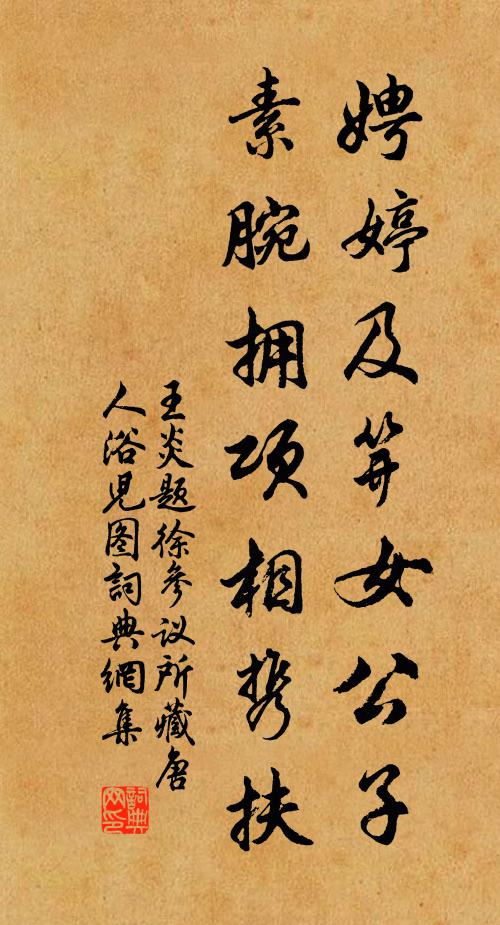 娉婷及笄女公子
素腕拥项相携扶
王炎题徐参议所藏唐
人浴儿图词典網集
詞典網印